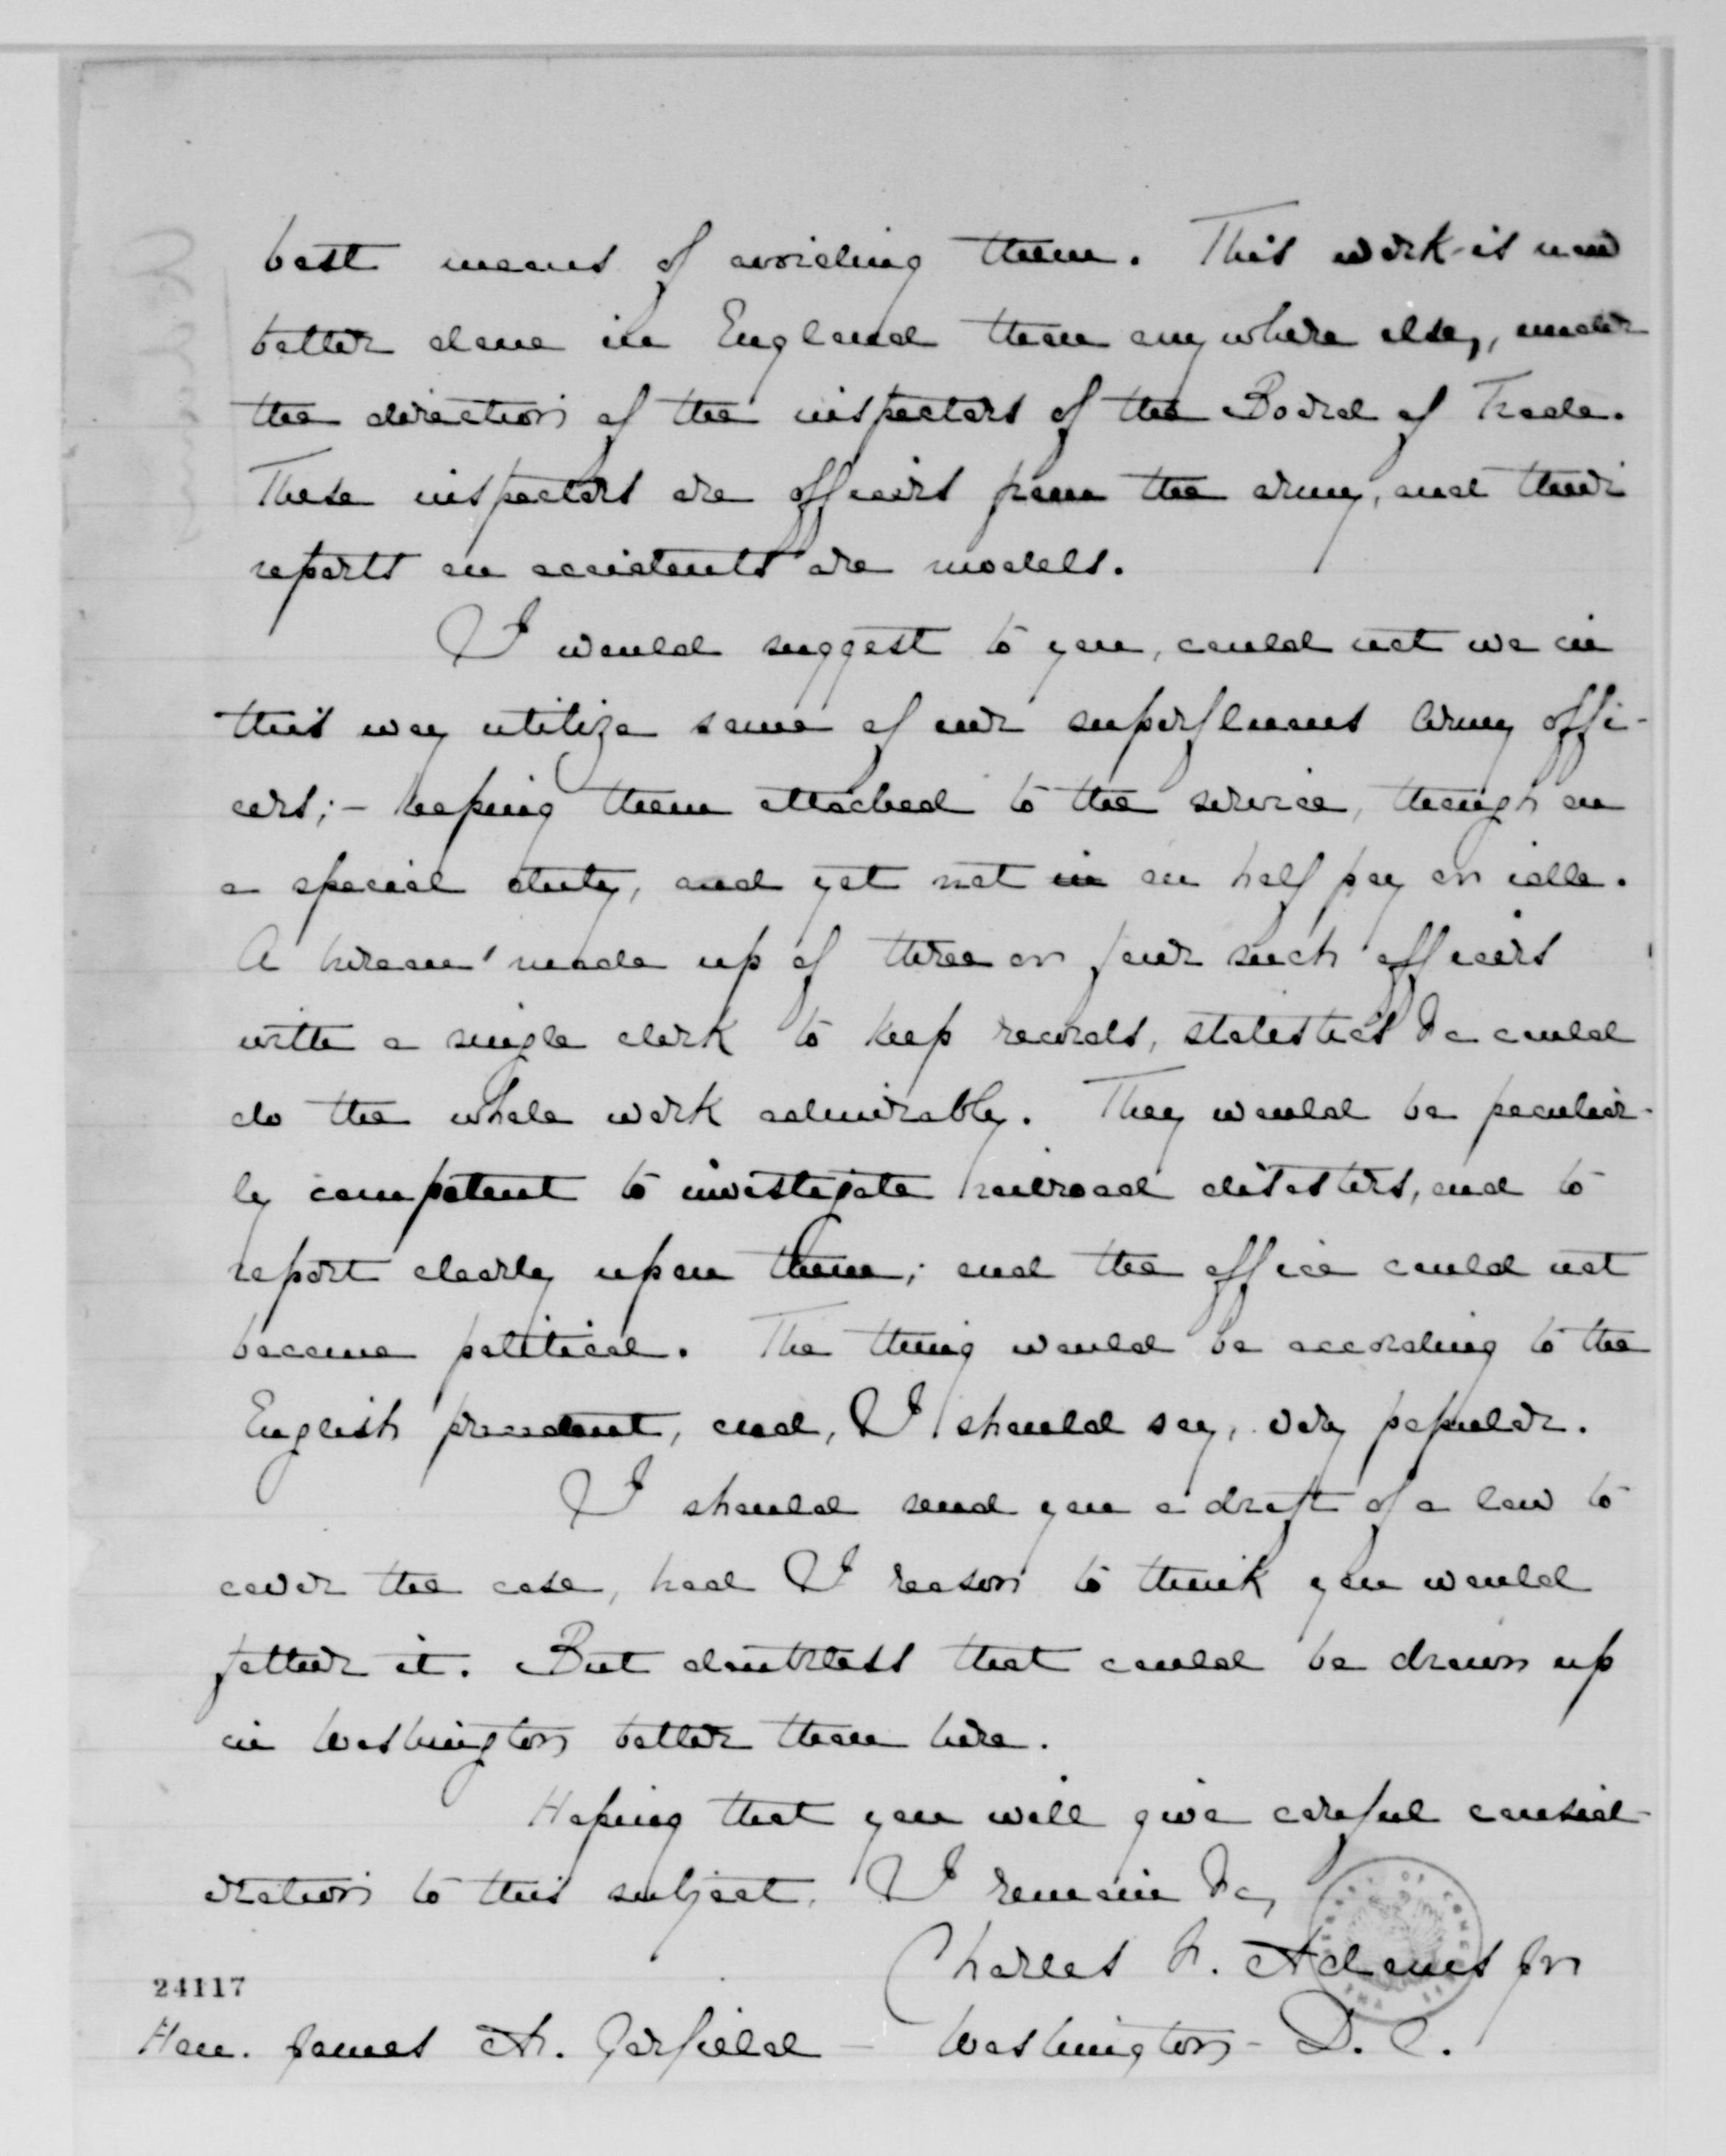 best means of avoiding them. This work is now
better done in England than anywhere else, under
the direction of the inspectors of the Board of Trade.
These inspectors are officers from the army, and their
reports on accidents are models.
I would suggest to you, could not we in
this way utilize some of our superfluous Army offi-
cers;- keeping them attached to the service, though on
a special duty, and yet not in on half pay or idle.
A bureau made up of three or four such officers
with a single clerk to keep records, statistics &c could
do the whole work admirably. They would be peculiar-
ly competent to investigate railroad disasters, and to
report clearly upon them; and the office could not
become political. The thing would be according to the
English precedent, and, I should say, very popular.
I should send you a draft of a law to
cover the case, had I reason to think you would
father it. But doubtless that could be drawn up
in Washington better than here.
Hoping that you will give careful consid-
eration to this subject, I remain &c,
Charles F. Adams Jr
24117
Hon. James A. Garfield - Washington - D. C.